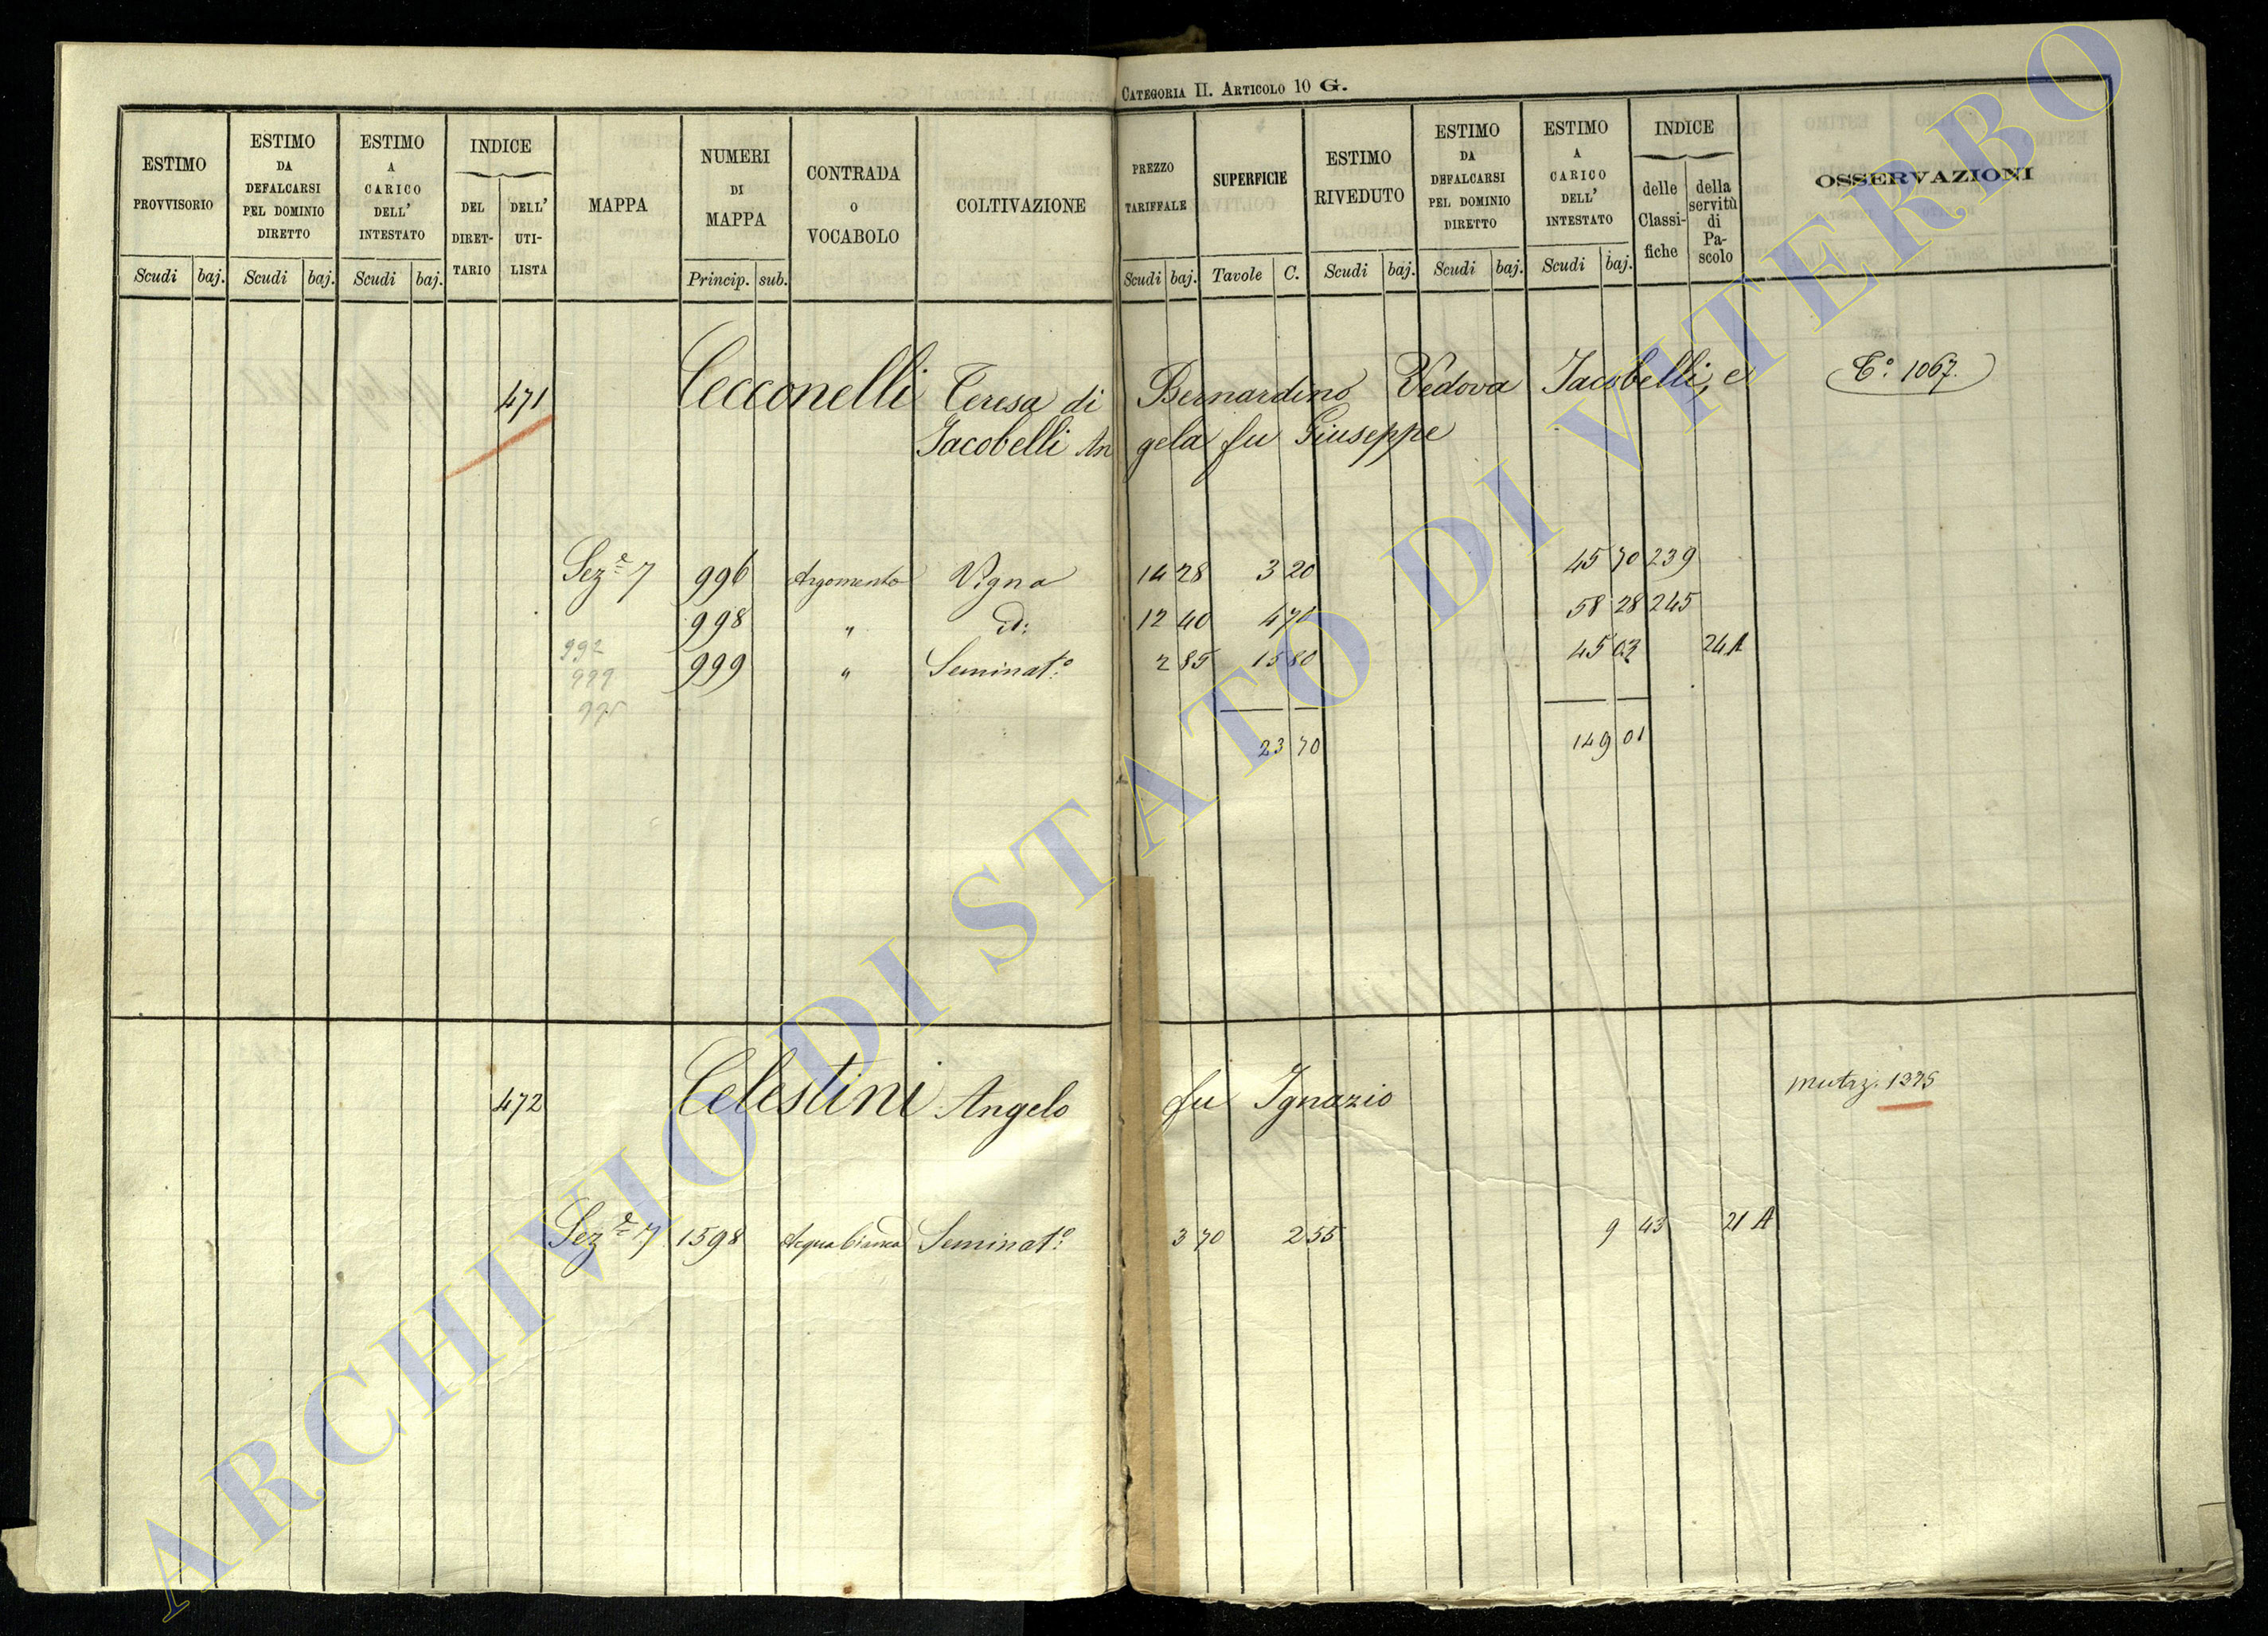 CATEGORIA II. ARTICOLO 10 G.
ESTIMO PROVVISORIO
ESTIMO DA DEFALCARSI PEL DOMINIO DIRETTO
ESTIMO A CARICO DELL' INTESTATO
INDICE
DEL DIRET-TARIO
DELL' UTI-LISTA
MAPPA
NUMERI DI MAPPA
CONTRADA O VOCABOLO
COLTIVAZIONE
PREZZO TARIFFALE
SUPERFICIE
ESTIMO RIVEDUTO
ESTIMO DA DEFALCARSI PEL DOMINIO DIRETTO
ESTIMO A CARICO DELL' INTESTATO
INDICE
delle Classi-fiche
della servitù di Pa-scolo
OSSERVAZIONI
Scudi baj. Scudi baj. Scudi baj. Princip. sub. Scudi baj. Tavole C. Scudi baj. Scudi baj. Scudi baj.
471 Cecconelli Teresa di Bernardino Vedova Jacobelli, e 1067.
Jacobelli Angela fu Giuseppe
Sez.e 7 996 Argomento Vigna 14 28 3 20 45 70 239
998 " d: 12 40 4 70 58 28 245
992
999 " Seminat.o 2 85 15 80 45 03 24 A
999
995
23 70 149 01
472 Celestini Angelo fu Ignazio mutaz. 1375
Sez.e 7 1598 Acquabianca Seminat.o 3 70 2 55 9 43 21 A
ARCHIVIO DI STATO DI VITERBO